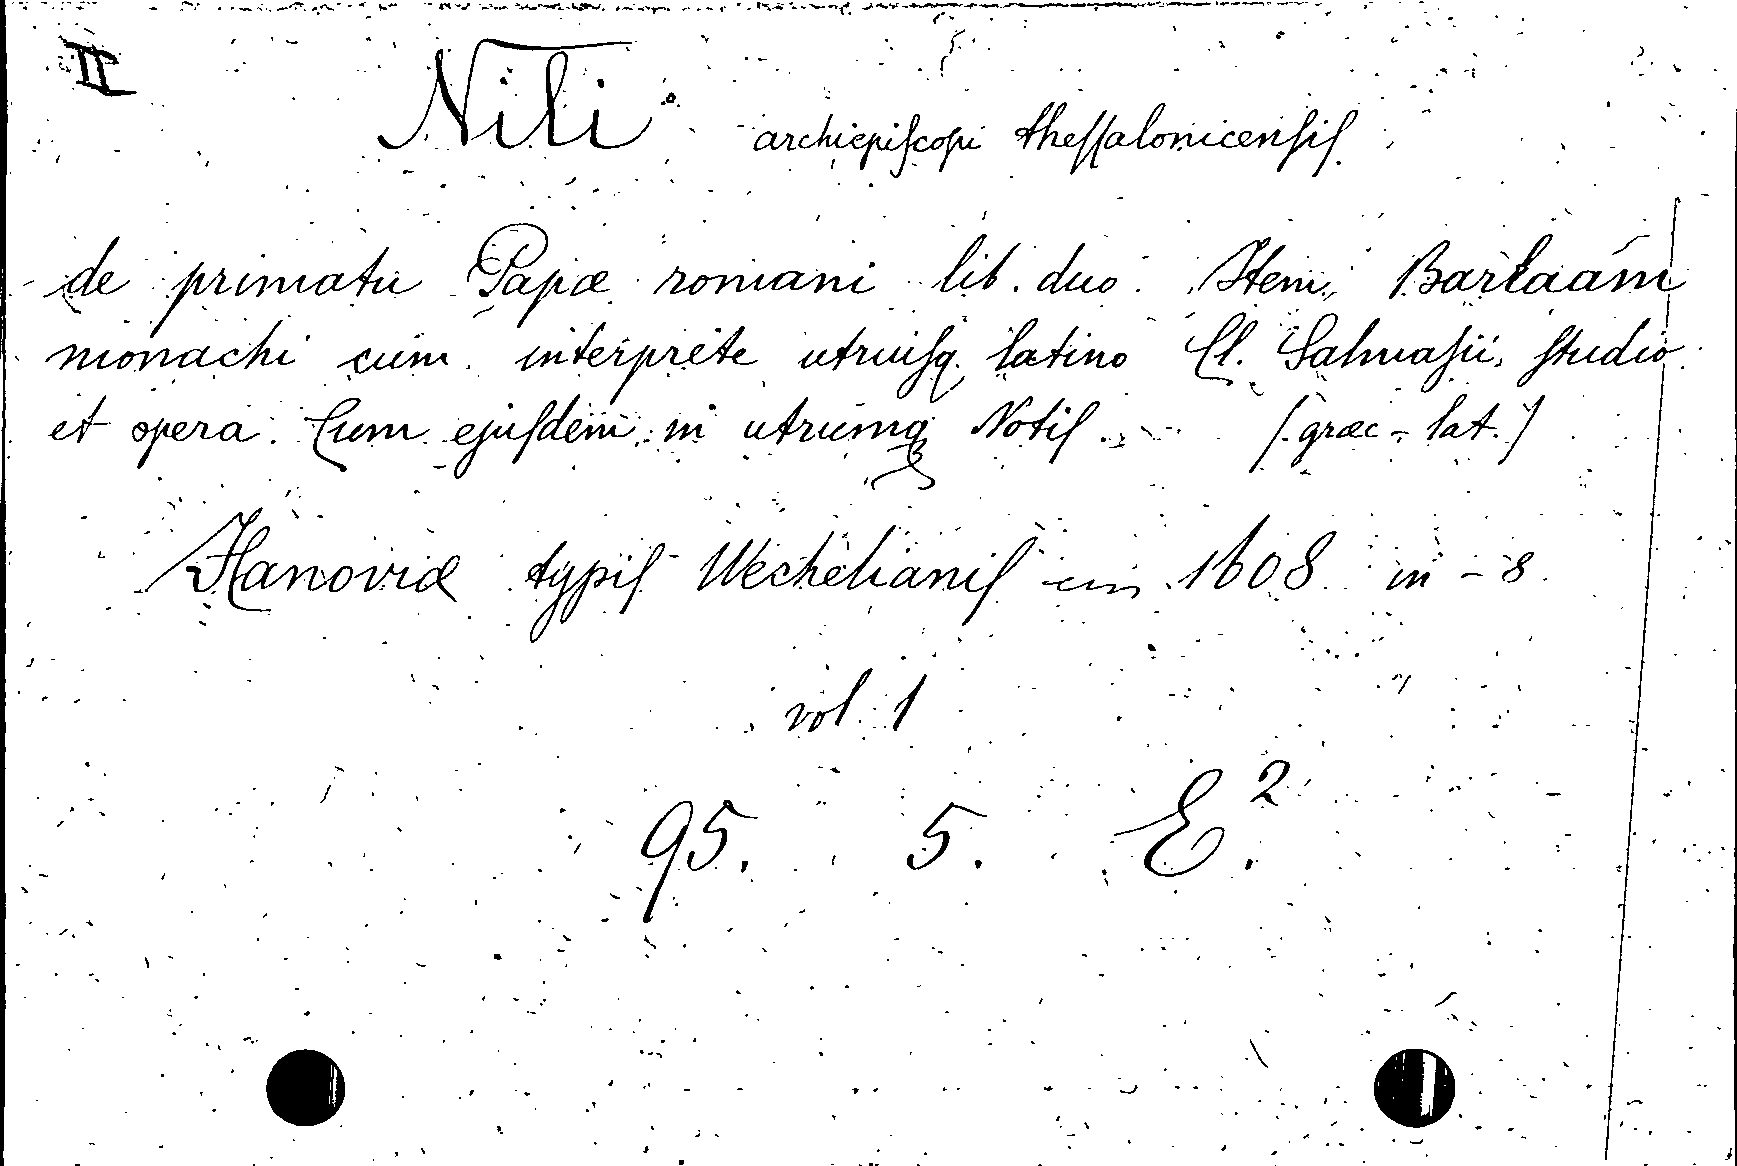 II
Nili archiepiſcopi theſſalonicenſiſ
de primatu Papæ romani lib. duo. Item, Barlaam
monachi cum interprete utruiſq. latino Cl. Salmaſii, ſtudio
et opera. Cum ejuſdem in utrumq Notiſ. (græc-lat.)
Hanoviæ typiſ Wechelianiſ 1608 in-8
vol 1
95. 5. E².